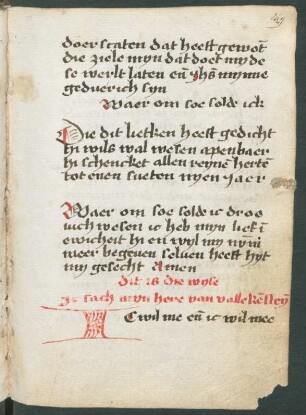 doerscaten dat heeft gewōt
die ziele myn dat doet my de
se werlt laten eñ ihs mynne
geduerich syn
Waer om soe solde ick
Die dit lietken heeft gedicht
hi wils wal wesen apenbaer
hi schencket allen reyne hertē
tot enen sueten nyen jaer
Waer om soe solde ic droe
uich wesen ic heb myn lief ī
ewicheit hi en wyl my nūm̄
meer begeuen seluen heeft hyt
my gesecht Amen
Dit is die wyse
Ic sach myn here van valkesteyn
Ic wil me eñ ic wil mee